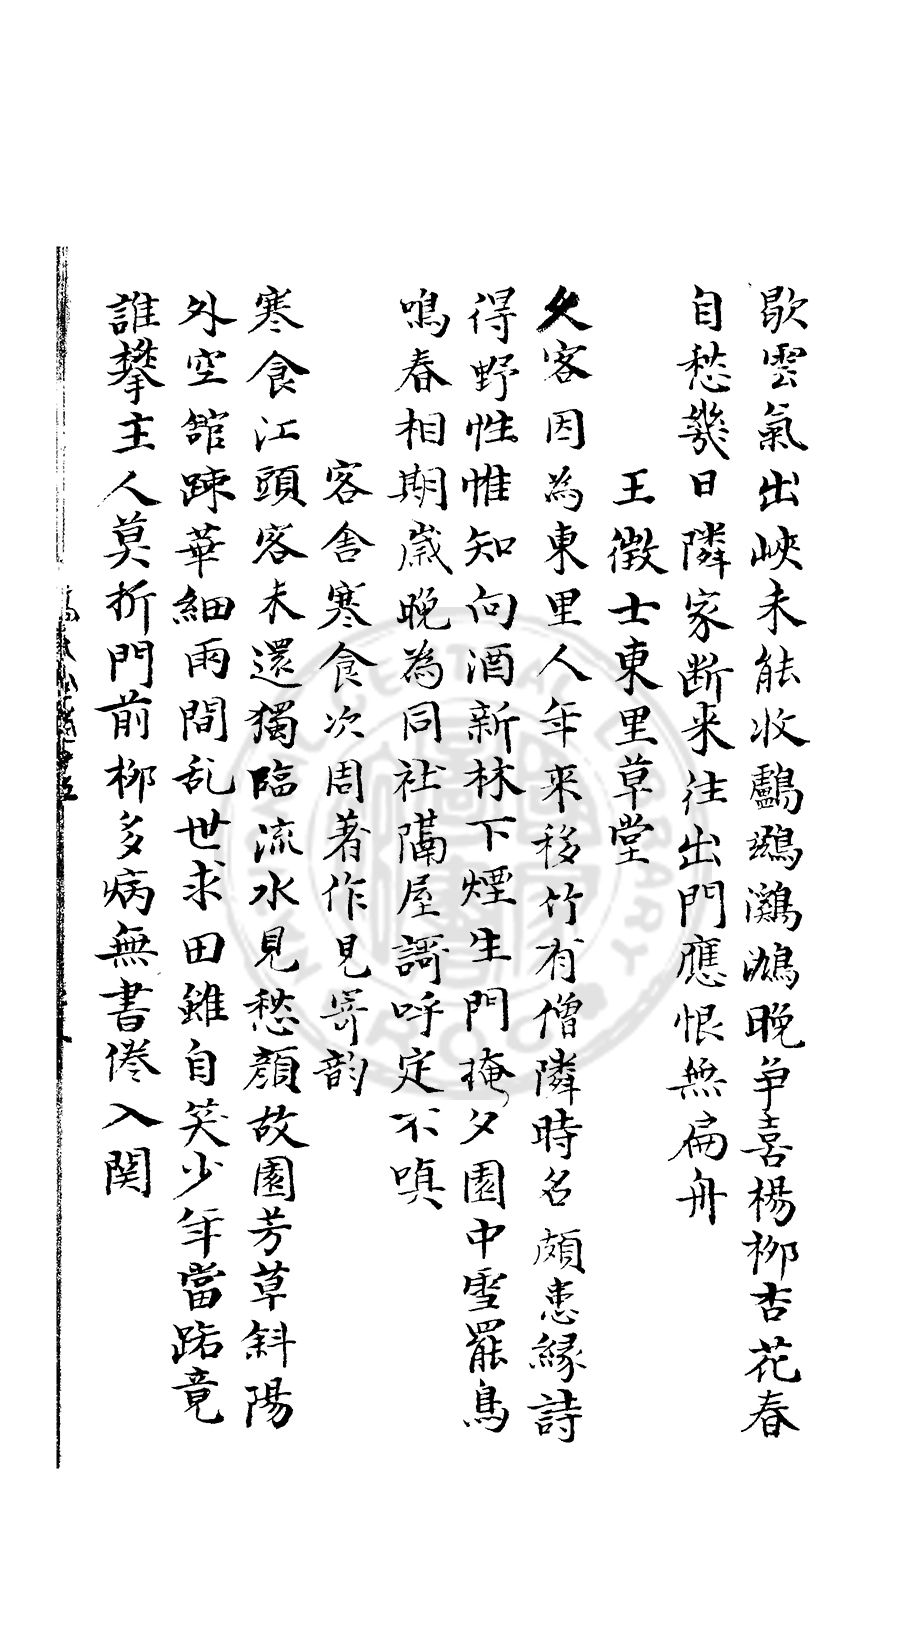 歇雲氣出峽未能收鸕鷀鸂鶒晚争喜楊柳杏花春
自愁幾日隣家断来往出門應恨無扁舟
王徵士東里草堂
久客因為東里人年来移竹有僧隣時名頗恚緣詩
得野性惟知向酒新林下煙生門掩夕園中雪罷鳥
鳴春相期歲晚為同社隔屋謌呼定不嗔
客舍寒食次周著作見寄韵
寒食江頭客未還獨臨流水見愁顏故園芳草斜陽
外空館踈華細雨間乱世求田雖自笑少年當路竟
誰攀主人莫折門前柳多病無書倦入関